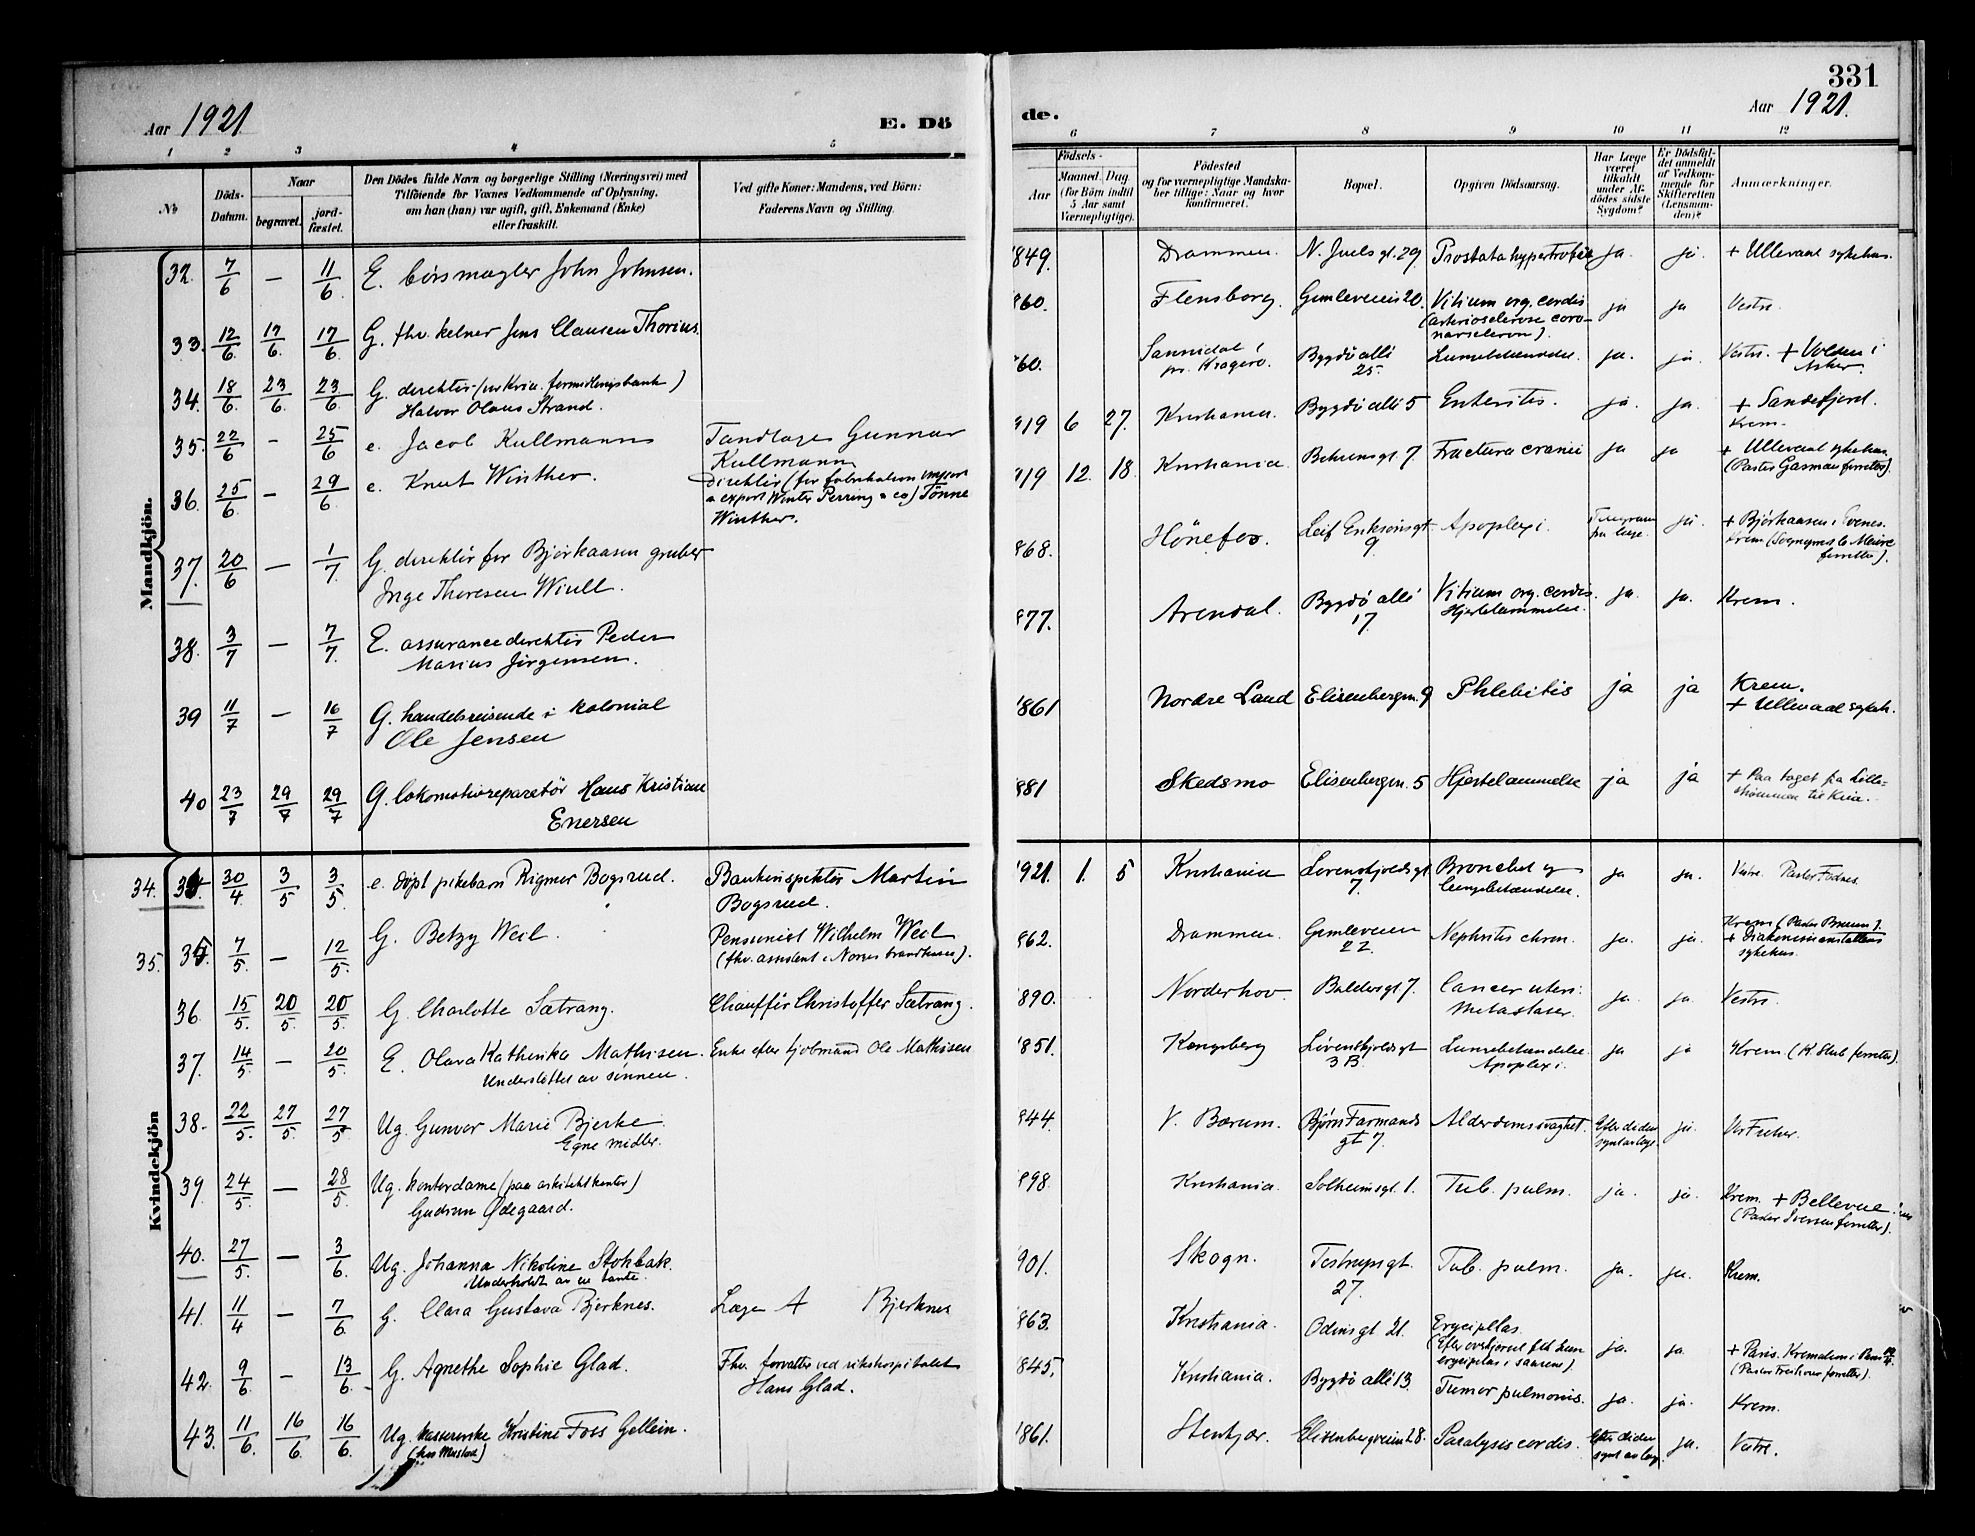 331
Aar 1921
E. Dö
de.
Aar 1921.
1 2 3 4 5 6 7 8 9 10 11 12
No
Döds-
Datum.
Naar
begravet.
jord-
fæstet.
Den Dödes fulde Navn og borgerlige Stilling (Næringsvei) med
Tilföiende for Voxnes Vedkommende af Oplysning,
om han (hun) var ugift, gift, Enkemand (Enke)
eller fraskilt.
Ved gifte Koner: Mandens, ved Börn:
Faderens Navn og Stilling.
Födsels-
Aar
Maaned. Dag.
(for Börn indtil
5 Aar samt
Værnepligtige).
Födested
og for værnepligtige Mandska-
ber tillige: Naar og hvor
konfirmeret.
Bopæl.
Opgiven Dödsaarsag.
Har Læge
været
tilkaldt
under Af-
dödes sidste
Sygdom?
Er Dödsfal-
det anmeldt
af Vedkom-
mende for
Skifteretten
(Lensman-
den)?
Anmærkninger.
Mandkjön.
32. 7/6 — 11/6. E. börsmægler John Johnsen. 849. Drammen. N. Juels gt. 29. Prostatahypertrofie ja. ja. + Ullevaal sykehus.
33. 12/6. 17/6. 17/6. G. fhv. kelner Jens Clausen Thorius. 860. Flensborg. Gimleveien 20. Vitium org. cordis ja ja Vestre.
(arteriosclerose coro-
narsclerose).
34. 18/6. 23/6. 23/6. G. direktör (ved Kria. formidlingsbank) 860. Sannidal i Bygdö allé Lungebetændelse. ja. ja. Vestre. + Volden i
Halvor Olaus Strand. pr. Kragerö. 25. Asker.
35. 22/6 - 25/6 e. Jacob Kullmann Tandlæge Gunnar 919 6 27. Kristiania. Bygdö allé 5 Enteritis. ja. ja. + Sandefjord.
Kullmann Krem.
36. 25/6 - 29/6 e. Knut Winther. Direktör (for fabrikation import 919 12. 18. Kristiania Behrensgt. 7 Fractura cranii ja ja + Ullevaal sykehus
& export Winter Perring & co) Tönne (Pastor Gasman forretter).
Winther.
37. 20/6 — 1/7 G. direktör for Bjørkaasen gruber 868. Hönefos. Leif Eriksönsgt. Apoplexi. ja. + Bjørkaasen i Evenes.
Inge Thoresen Wiull. 9. fra læge. Krem (Sogneprest de Meure
forretter).
38. 3/7 — 7/7. E. assurancedirektör Peder 877. Arendal. Bygdö allé Vitium org. cordis. ja. ja. Krem.
Marius Jörgensen. 17. Hjertelammelse.
39 11/7 — 16/7 G. handelsreisende i kolonial 1861 Nordre Land Elisenbergvn. 9 Phlebitis ja ja Krem.
Ole Jensen + Ullevaal sykeh.
40 23/7 29/7 29/7 G. lokomotivreparatör Hans Kristian 881 Skedsmo Elisenbergvn. 5 Hjertelammelse ja ja + Paa toget fra Lille-
Enersen strömmen til Kria.
Kvindekjön
34. 30/4 3/5 3/5. e. döpt pikebarn Rigmor Bogsrud. Bankinspektör Martin 1921. 1. 5 Kristiania Lövenskjoldsgt Bronchit og ja ja. Vestre. Pastor Fodnes.
Bogsrud. 7 lungebetændelse.
35. 7/5. - 12/5. G. Betzy Weel. Pensionist Wilhelm Weel 862. Drammen. Gimleveien Nephritis chron. ja. ja. Krem (Pastor Bruun).
(fhv. assistent i Norges brandkasse). 22. + Diakonisseanstaltens
sykehus.
36 15/5. 20/5. 20/5. G. Charlotte Sætrang. Chaufför Christoffer Sætrang. 890. Norderhov. Baldersgt 7. Cancer uteri. ja. ja. Vestre.
Metastaser.
37. 14/5. - 20/5. E. Olava Kathinka Mathisen. Enke efter kjöbmand Ole Mathisen 851. Kongsberg Lövenskjoldsgt Lungebetændelse. ja ja Krem (K. Stub forretter).
Understöttet av sönnen. 3 B. Apoplexi.
38. 22/5. 27/5. 27/5 Ug. Gunvor Marie Bjerke. 844. V. Bærum. Bjørn Farmands Alderdomssvaghet. Efter döden ja. Vor Frelser.
Egne midler. gt 7. synt av læge.
39 24/5. — 28/5. Ug. kontordame (paa arkitektkontor) 898. Kristiania. Solheimsgt. 1. Tub. pulm. ja. ja. Krem. + Bellevue
Gudrun Ødegaard. (Pastor Iversen forretter).
40. 27/5. — 3/6. Ug. Johanna Nikoline Stokbak. 901. Skogn. Testrupsgt. Tub. pulm. ja. ja. Krem.
Underholdt av en tante. 27.
41. 11/4 — 7/6. G. Clara Gustava Bjerknes. Læge A Bjerknes 863. Kristiania. Odinsgt 21. Erysipelas. ja. ja + Paris. Krematoriet i Paris
(Efter overkjørsel fik hun (Pastor forretter).
erysipelas i saarene)
42. 9/6. — 13/6. G. Agnethe Sophie Glad. Fhv. forvalter ved rikshospitalet 845. Kristiania. Bygdö allé 13. Tumor pulmonis. ja. ja. Krem.
Hans Glad.
43. 11/6. 16/6 16/6 Ug. kassererske Kristine Foss Gellein. 1861. Stenkjær. Elisenbergveien 28. Paralysis cordis. Efter döden ja. Vestre.
(hos Mustad) synt av læge.